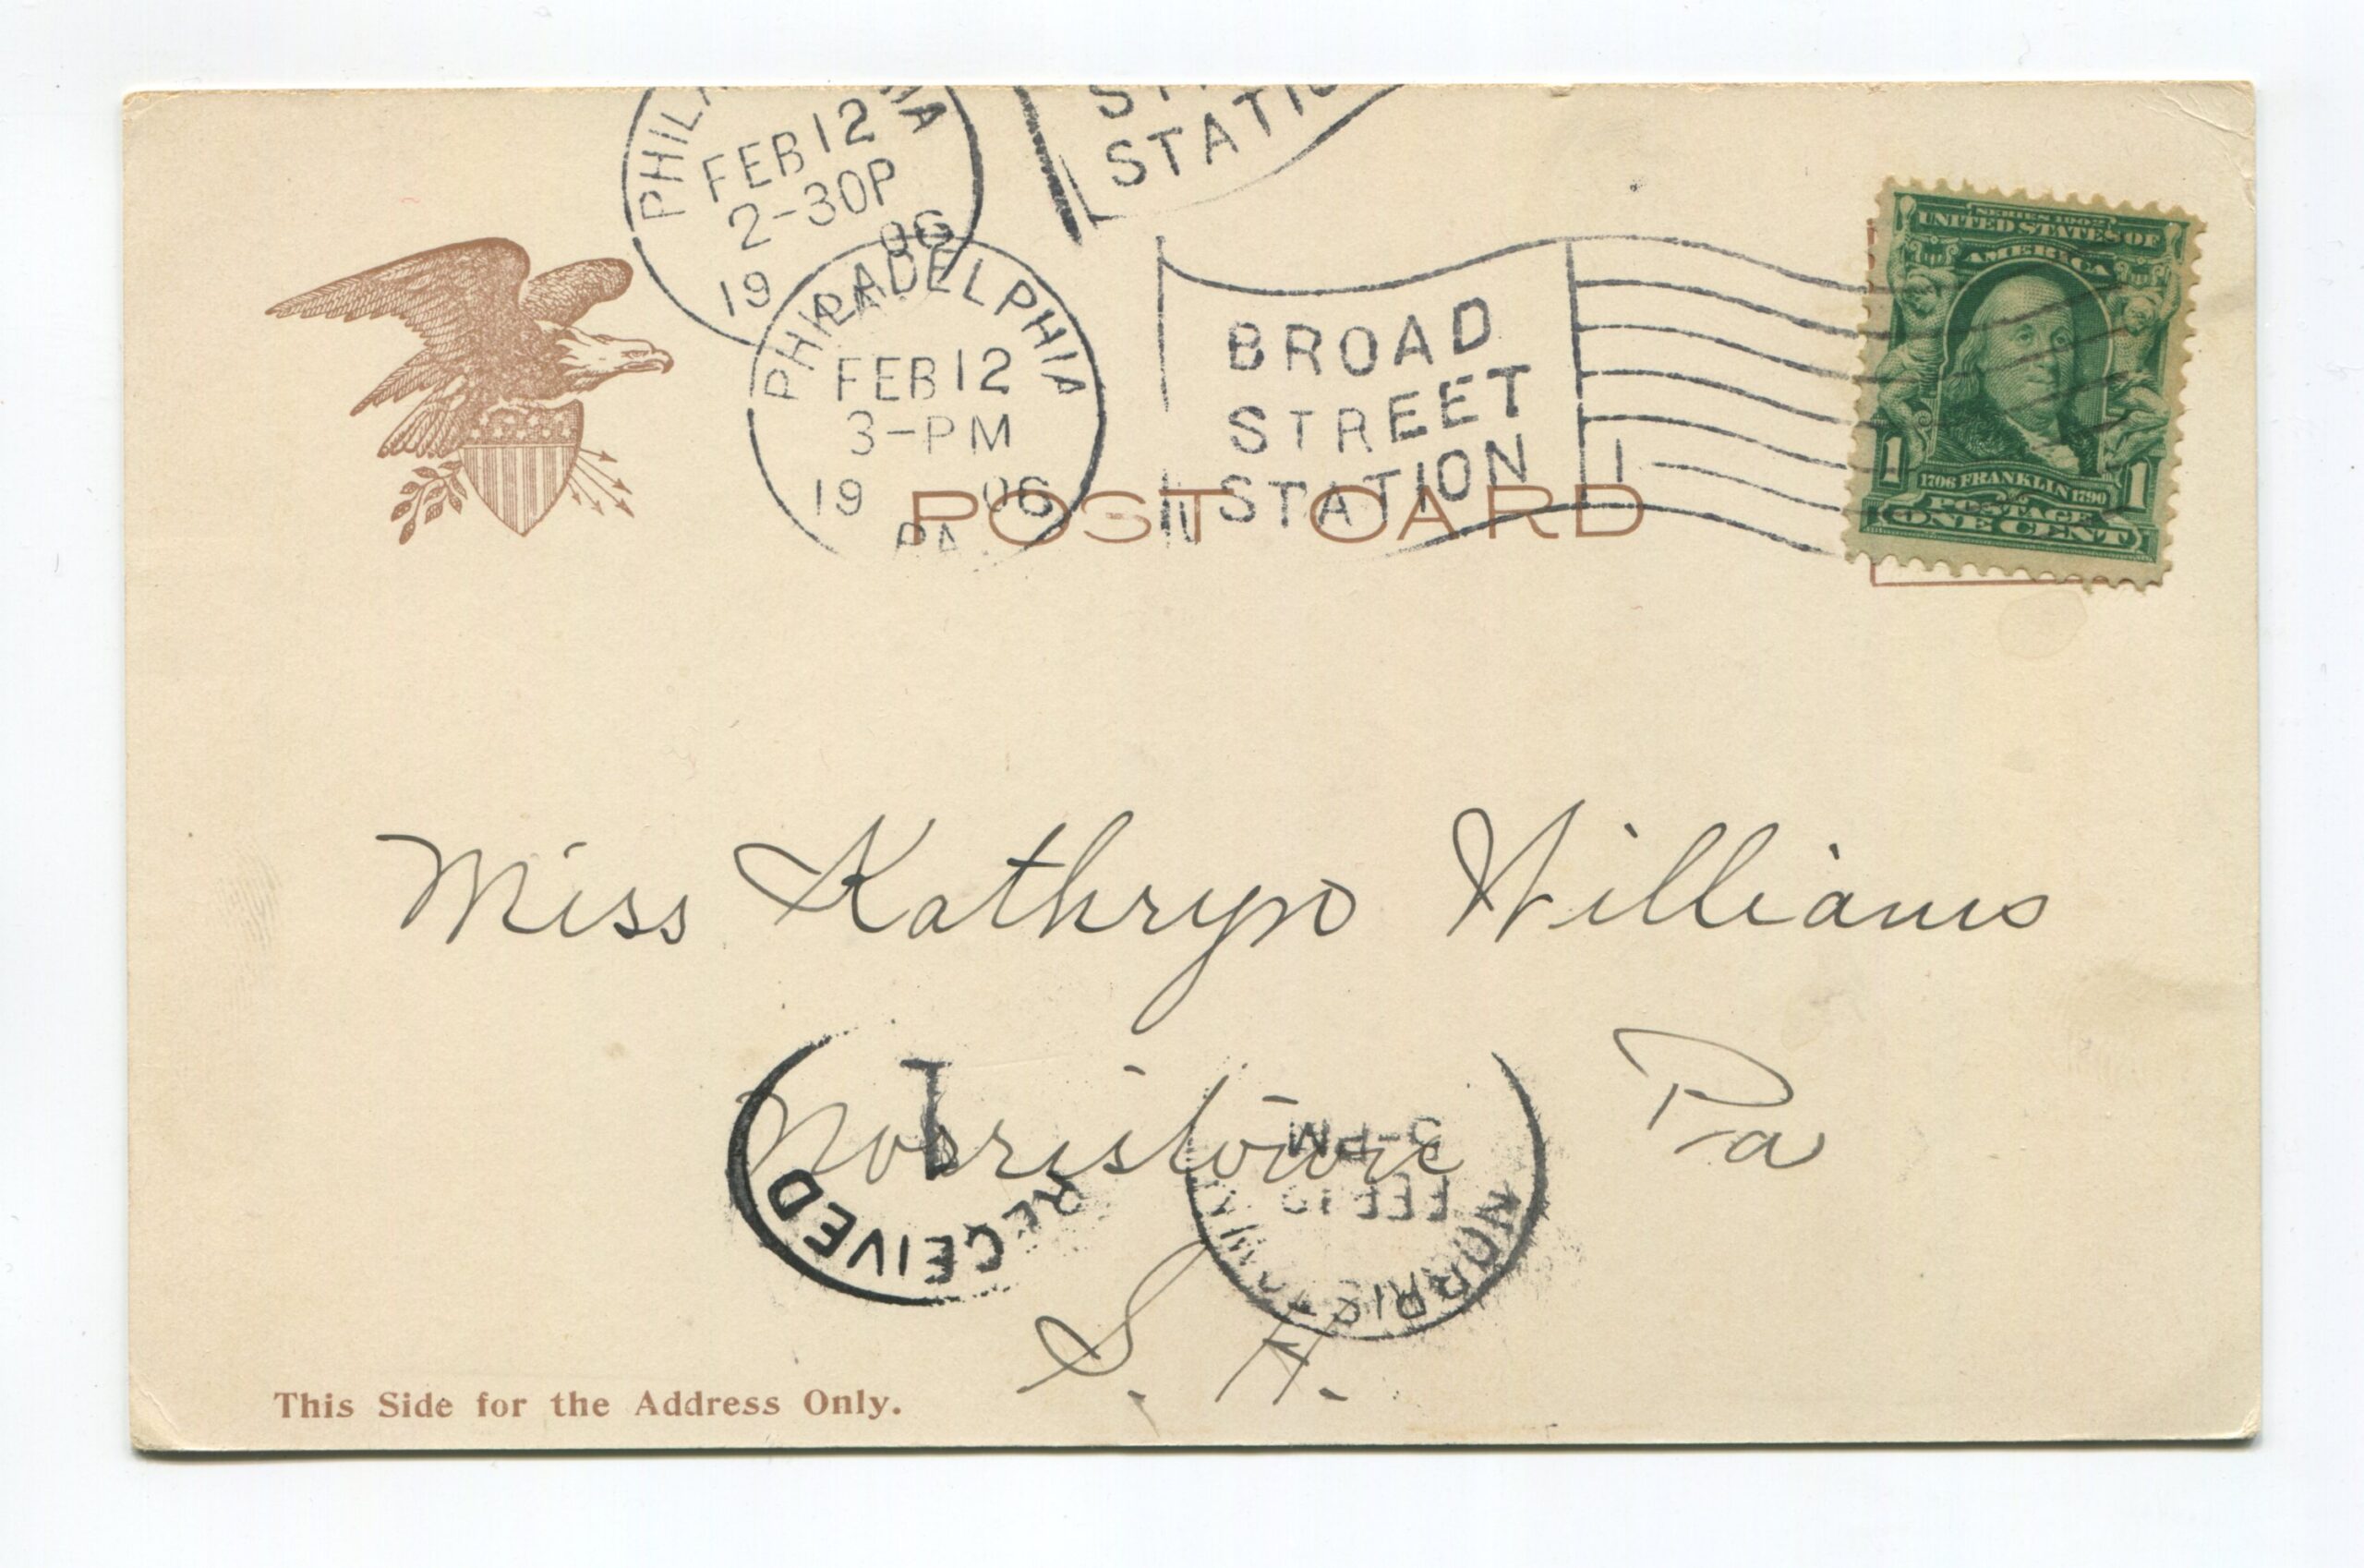 PHILA
IA
FEB 12
2-30P
19 06
PA.
STATIO
PHILADELPHIA
FEB 12
3-PM
19 06
PA.
BROAD
STREET
STATION
1
SERIES 1902
UNITED STATES OF
AMERICA
1 1
1706 FRANKLIN 1790
POSTAGE
ONE CENT
POST CARD
Miss Kathryn Williams
Norristown Pa
S. H.
1
RECEIVED
3-PM
FEB
NORRISTOWN
This Side for the Address Only.